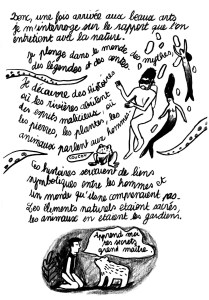 Donc, une fois arrivée aux beaux arts
je m'interroge sur le rapport que l'on
entretient avec la nature.
Je plonge dans le monde des mythes,
des légendes et des contes.
Je découvre des histoires
où les rivières abritent
des esprits malicieux, où
les pierres, les plantes, les
animaux parlent aux hommes.
COUCOU
Ces histoires seraient de liens
symboliques entre les hommes et
un monde qu'ils ne comprenaient pas.
Les éléments naturels étaient sacrés,
les animaux en étaient les gardiens.
Apprends moi
tes secrets
grand maître